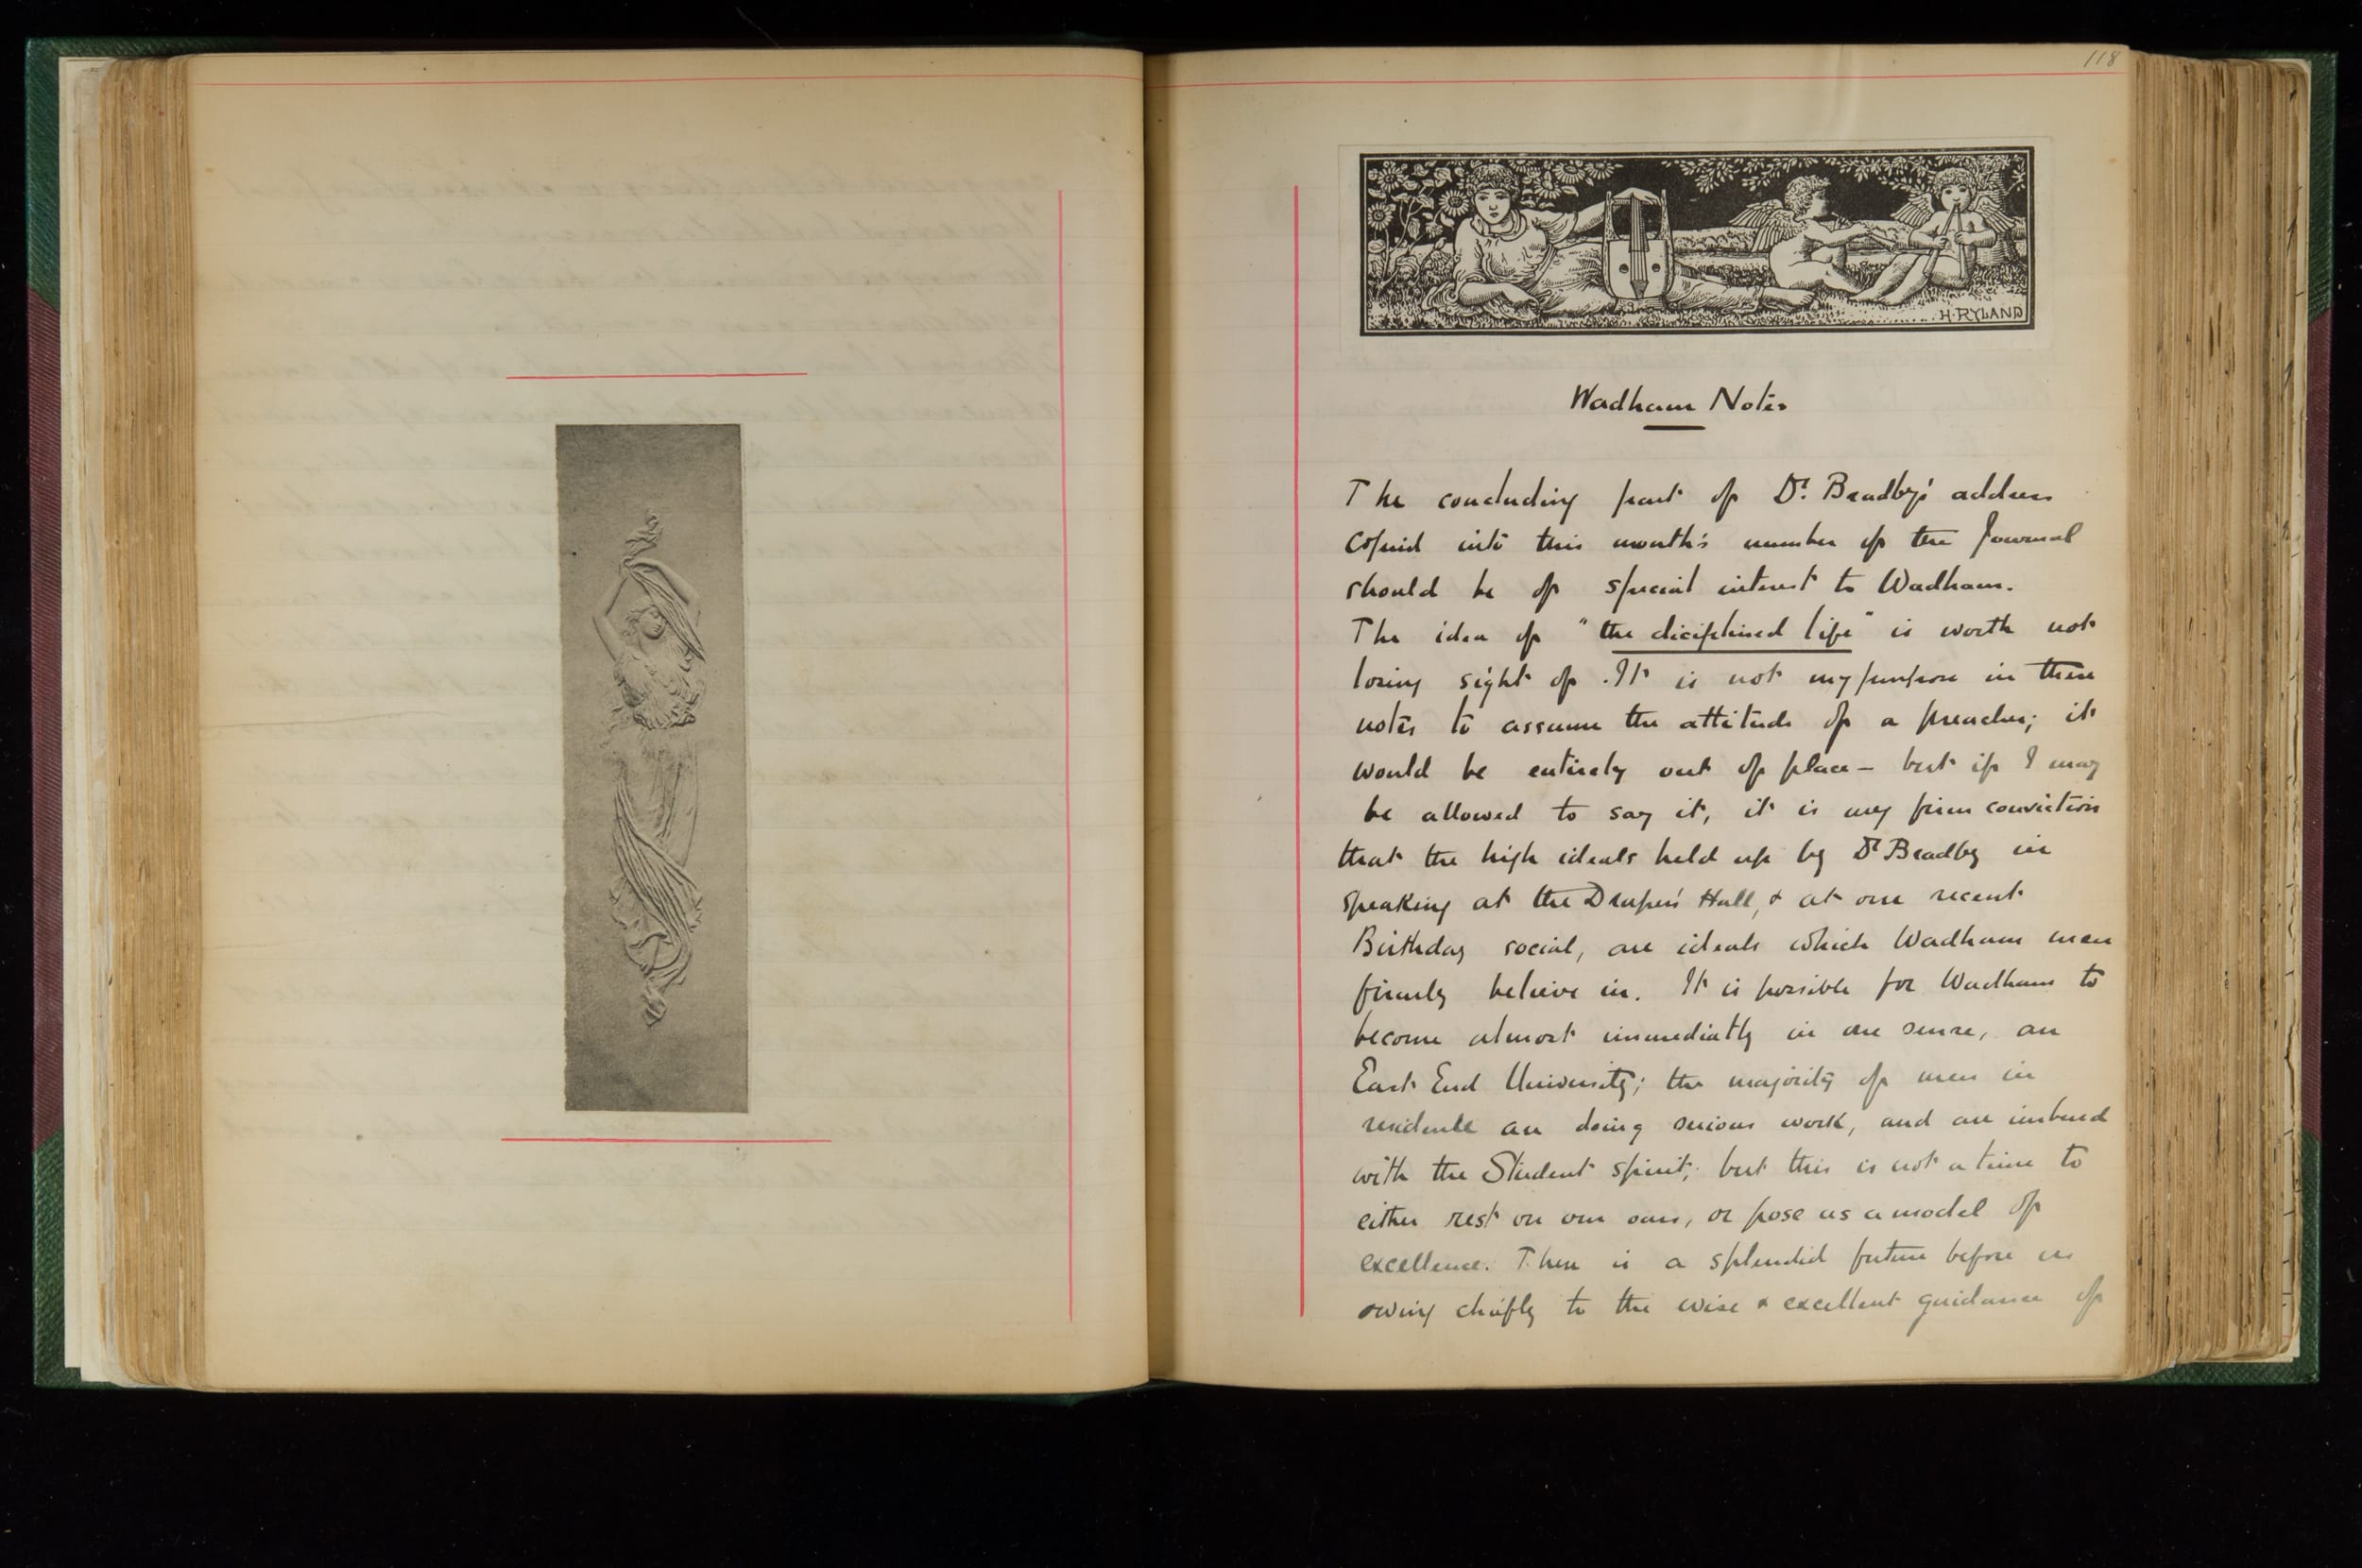 118
H. RYLAND
Wadham Notes
The concluding part of Dr. Bradby's address
copied into this month's number of the Journal
should be of special interest to Wadham.
The idea of "the diciplined life" is worth not
losing sight of. It is not my purpose in these
notes to assume the attitude of a preacher; it
would be entirely out of place – but if I may
be allowed to say it, it is my firm conviction
that the high ideals held up by Dr Bradby in
speaking at the Draper's Hall, & at our recent
Birthday social, are ideals which Wadham men
firmly believe in. It is possible for Wadham to
become almost immediatly in one sense, an
East End University; the majority of men in
residence are doing serious work, and are imbued
with the Student spirit; but this is not a time to
either rest on our oars, or pose as a model of
excellence. There is a splendid future before us
owing chiefly to the wise & excellent guidance of